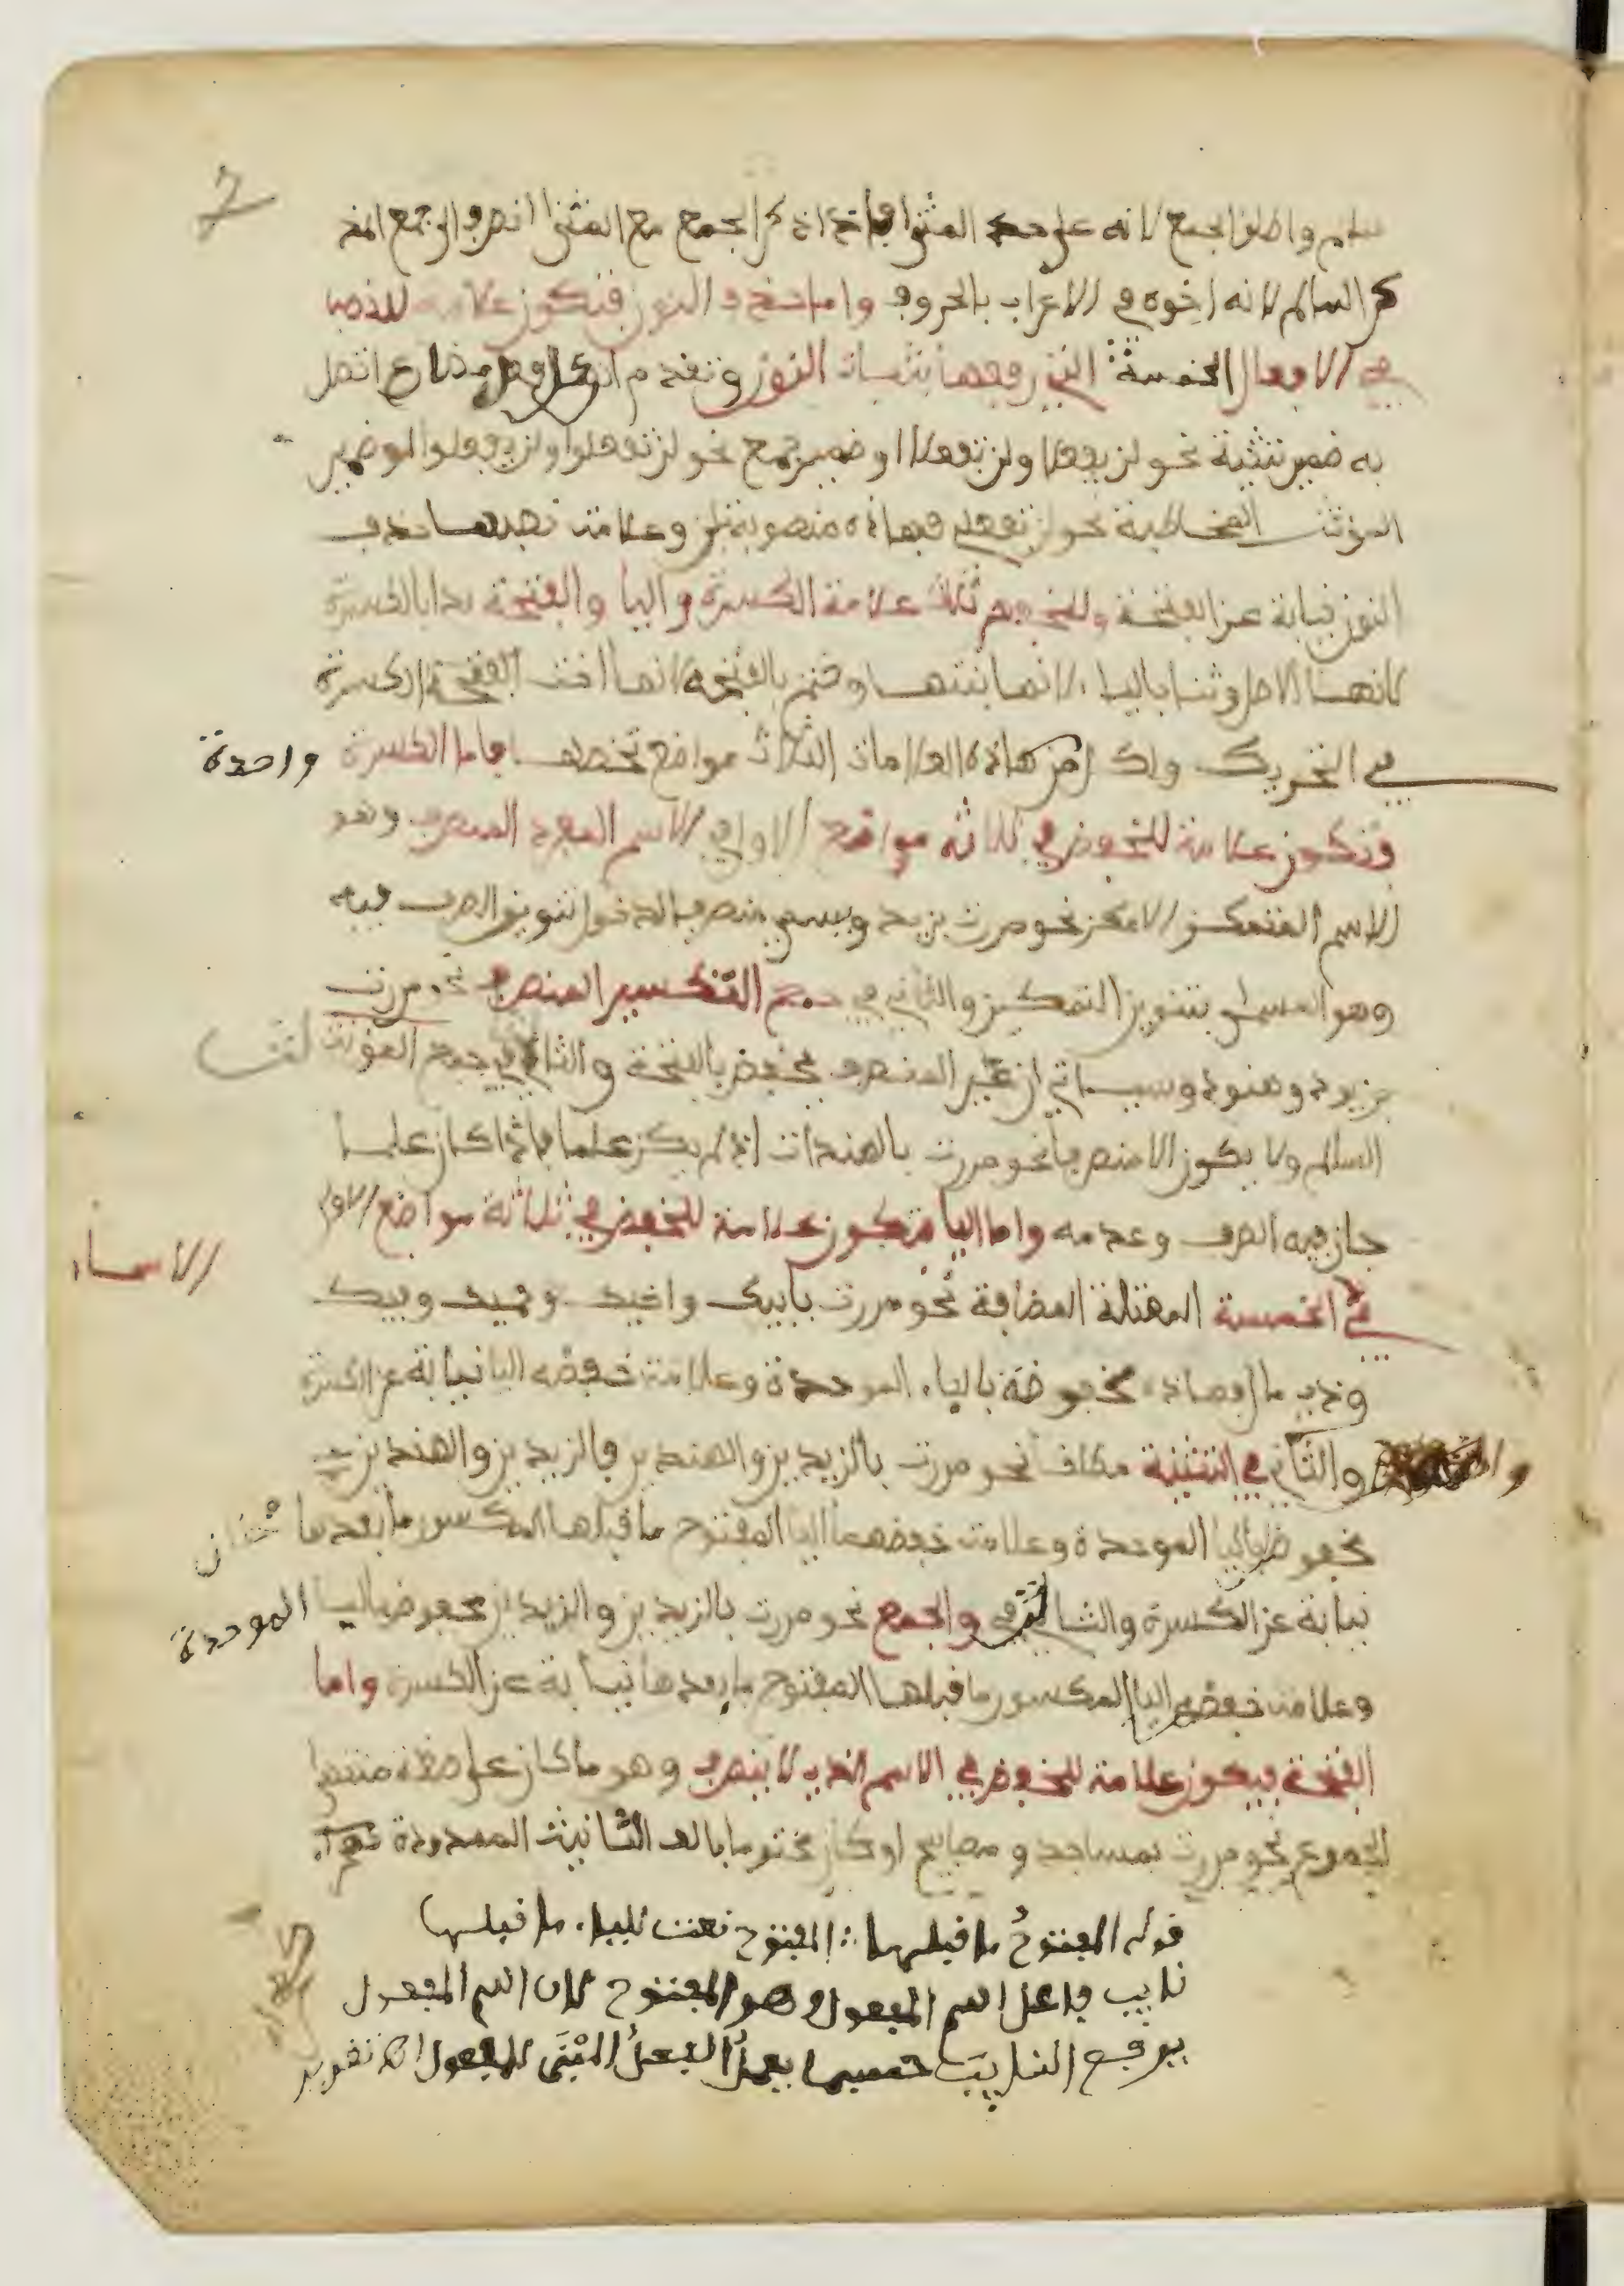 سلم واطلق الجمع لانه على حد المثنى فاذا ذكر الجمع مع المثنى انصرف الى جمع المذ
كر السالم لانه اخوه في الاعراب بالحروف واما حذف النون فتكون علامة للنصب
في الافعال الخمسة التي رفعها بثبات النون وتقدم انها كل فعل مضارع اتصل
به ضمير تثنية نحو لن يفعلا ولن تفعلا او ضمير جمع نحو لن تفعلوا ولن يفعلوا او ضمير
المؤنث المخاطبة نحو لن تفعلي فهاذه منصوبة بلن وعلامة نصبها حذف
النون نيابة عن الفتحة وللخفض ثلث علامة الكسرة واليا والفتحة بدا بالكسرة
لانها الاصل وثنا باليا لانها بنتها وختم بالفتحة لانها اخت الكسرة
في التحريك ولكل واحدة من هاذه العلامات الثلاث مواضع تخصها فاما الكسرة
فتكون علامة للخفض في ثلاثة مواضع الاول في الاسم المفرد المنصرف وهو
الاسم المتمكن الامكن نحو مررت بزيد ويسمى منصرفا لدخول تنوين الصرف فيه
وهو المسمى بتنوين التمكين والثاني في جمع التكسير المنصرف نحو مررت
بزيود وهنود وسياتي ان غير المنصرف يخفض بالفتحة والثالث في جمع المؤنث
السالم ولا يكون الا منصرفا نحو مررت بالهندات اذا لم يكن علما فاذا كان علما
جاز فيه الصرف وعدمه واما اليا فتكون علامة للخفض في ثلاثة مواضع الاول
في الاسماء الخمسة المعتلة المضافة نحو مررت بابيك واخيك وحميك وفيك
وذي مال فهاذه مخفوضة بالياء الموحدة وعلامة خفضه اليا نيابة عن الكسرة
والثاني في التثنية مطلقا نحو مررت بالزيدين والهندين فالزيدين والهندين
مخفوضان باليا الموحدة وعلامة خفضهما اليا المفتوح ما قبلها المكسور ما بعدها
نيابة عن الكسرة والثالث في والجمع نحو مررت بالزيدين والزيدين مخفوض باليا الموحدة
وعلامة خفضه اليا المكسور ما قبلها المفتوح ما بعدها نيابة عن الكسرة واما
الفتحة فيكون علامة للخفض في الاسم الذي لا ينصرف وهو ما كان على صيغة منتهى
الجموع نحو مررت بمساجد ومصابيح او كان مختوما بالف التانيث الممدودة
قوله المفتوح ما قبلها: المفتوح نعت للياء. ما قبلها
نايب فاعل اسم المفعول وهو المفتوح لان اسم المفعول
يرفع النايب حسبما يعمل الفعل المبني للمفعول